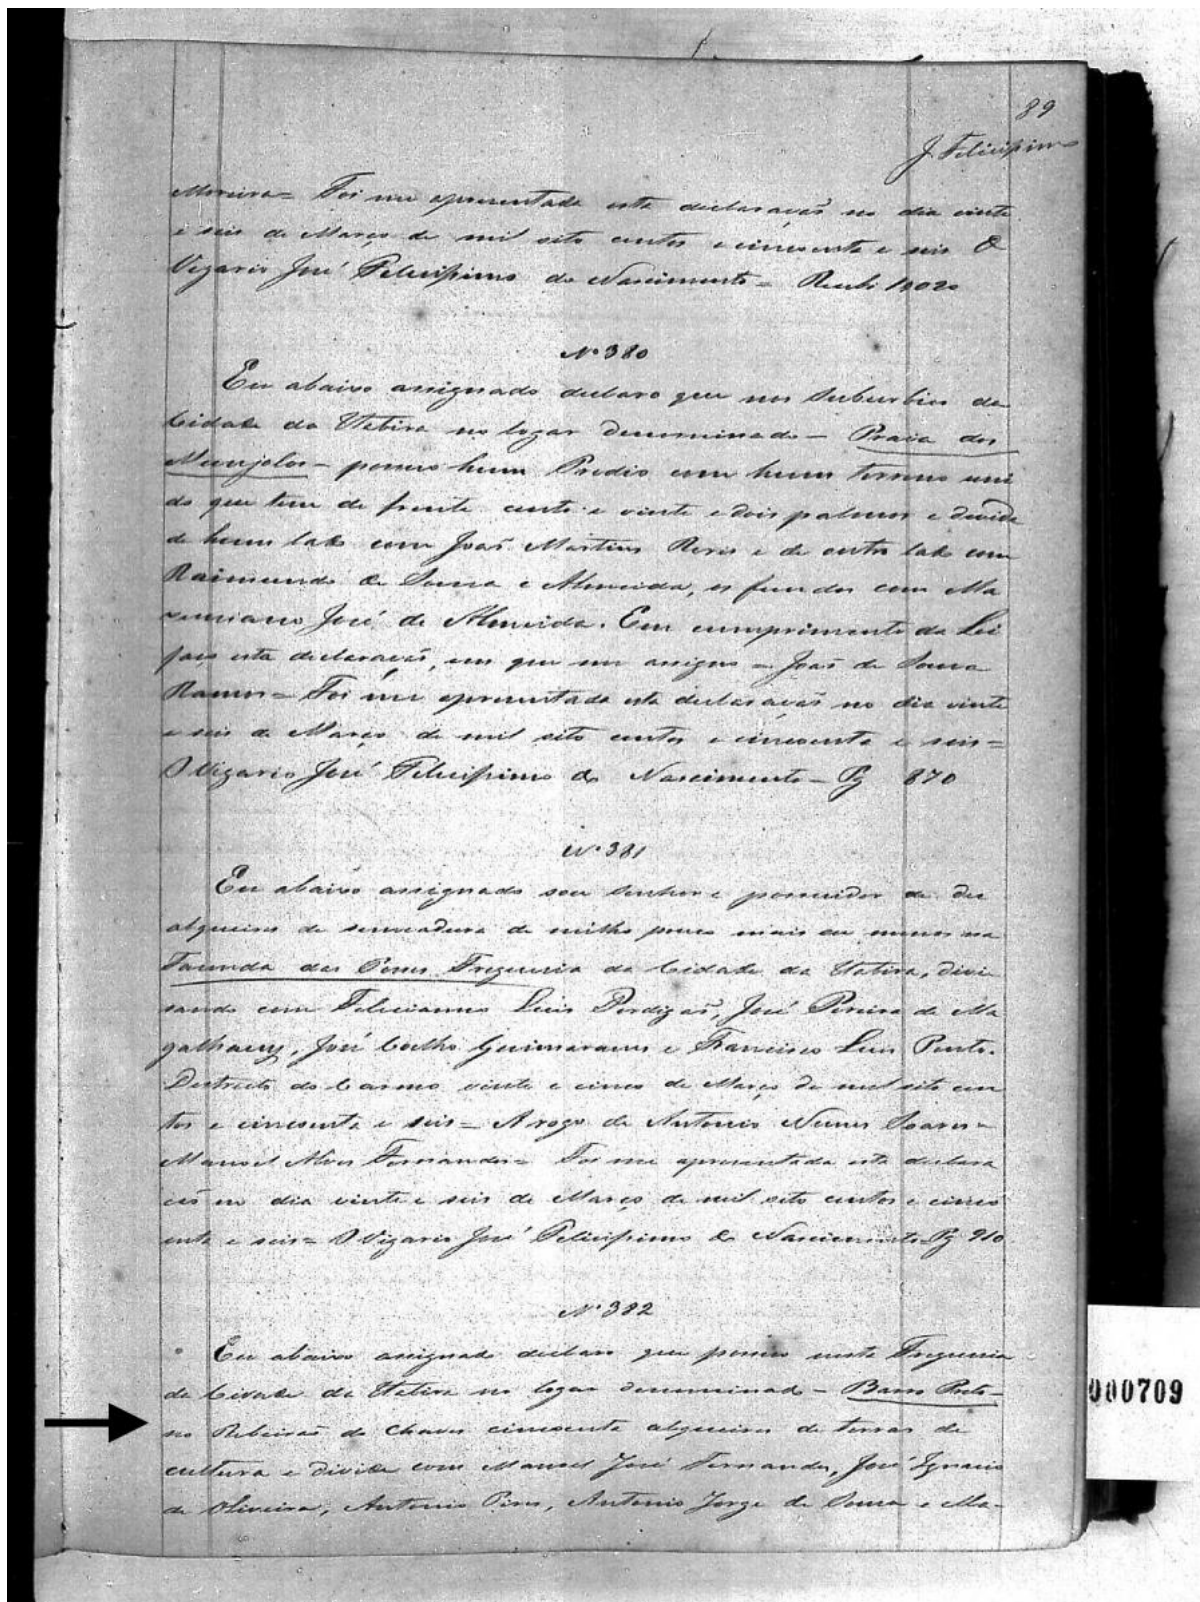 89
J. Felicissimo
Moreira = Foi me apresentada esta declaração no dia vinte
e seis de Março de mil oito centos e cincoenta e seis O
Vigario José Felicissimo do Nascimento = Recebi 1$020
Nº 380
Eu abaixo assignado declaro que nos suburbios da
Cidade da Itabira no logar denominado - Praia dos
Munjolos - possuo hum Predio com hum terreno uni
do que tem de frente cento e vinte e dois palmos e divide
de hum lado com João Martins Reris e de outro lado com
Raimundo de Souza e Almeida, os fundos com Ma
ximiano José de Almeida. Em cumprimento da Lei
faço esta declaração, em que me assigno = João de Souza
Ramos = Foi me apresentada esta declaração no dia vinte
e seis de Março de mil oito centos e cincoenta e seis =
O Vigario José Felicissimo do Nascimento - Pg 870
Nº 381
Eu abaixo assignado sou senhor e possuidor de des
alqueires de semeadura de milho pouco mais ou menos na
Fazenda das Freguesia da Cidade da Itabira, divi
sando com Felicianno Luis Perdigaõ, José Pereira de Ma
galhaens, José Coelho Guimaraens e Francisco Luis Pinto.
Destricto do Carmo vinte e cinco de Março de mil oito cen
tos e cincoenta e seis = A rogo de Antonio Nunes Soares =
Manoel Alves Fernandes = Foi me apresentada esta declara
ção no dia vinte e seis de Março de mil oito centos e cinco
enta e seis = O Vigario José Felicissimo do Nascimento - Pg 910
Nº 382
Eu abaixo assignado declaro que possuo nesta Freguesia
da Cidade da Itabira no logar denominado - Barro Preto -
no Ribeirão do Chaves cincoenta alqueires de terras de
cultura e divide com Manoel José Fernandes, José Ignacio
de Oliveira, Antonio Pires, Antonio Jorge de Souza e Ma-
000709